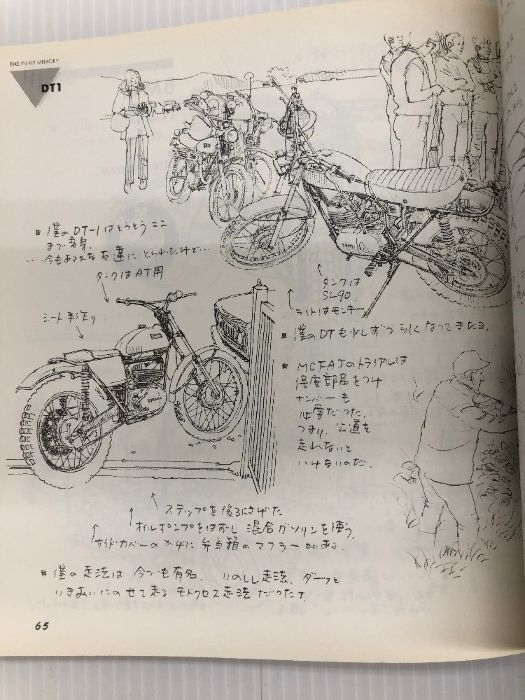 BIKE IN MY MEMORY
DT1
僕のDT-1はとうとうここ
まで変身。
今もある友達に とられたけど…
タンクはAT用
シート手作り
タンクは
SL90.
ライトはモンキー
僕のDTも少しずつ らしくなってきたヨ.
MCFAJのトライアルは
保安部品をつけ
ナンバーも
必要だった.
つまり、公道を
走れないと
いけないのだ.
ステップを後ろにさげた
オイルポンプをはずし 混合ガソリンを使う.
サイドカバーの 弁当箱のマフラーがある.
僕の走法は 今でも有名. いのしし走法. ダーッと
いきおいにのせて走る モトクロス走法 だったナ
65